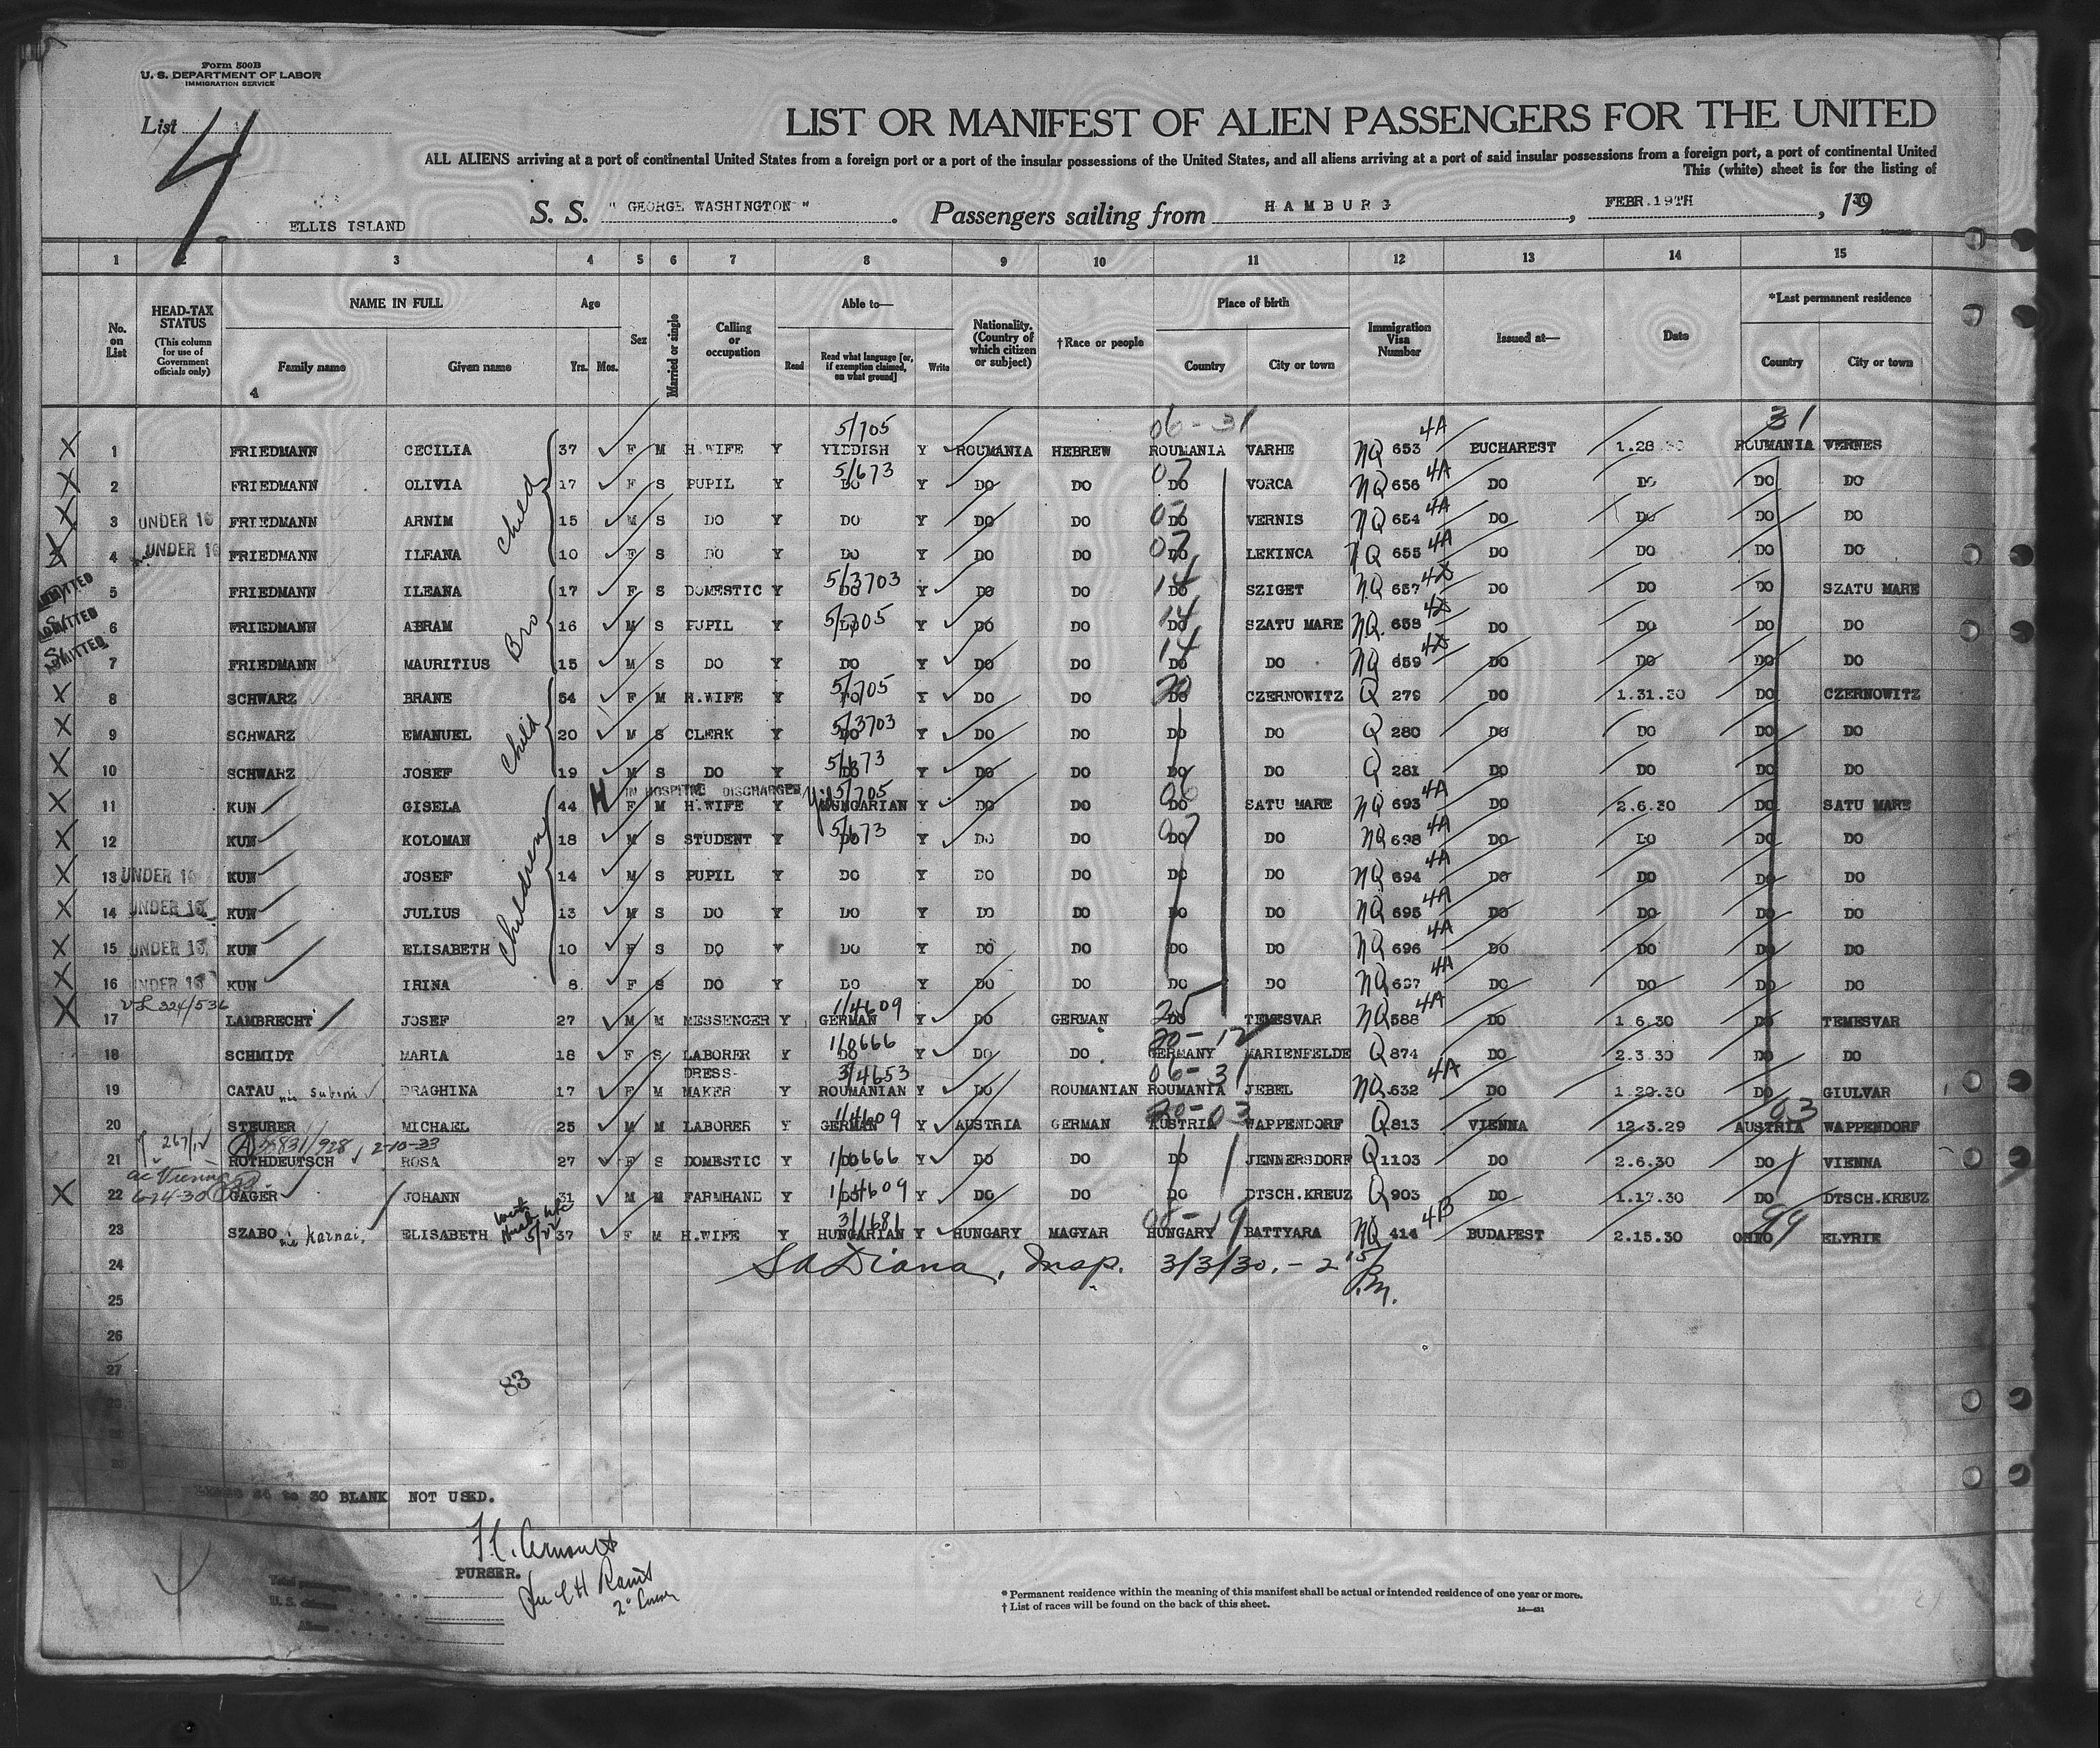 Form 500B
U. S. DEPARTMENT OF LABOR
IMMIGRATION SERVICE
List 4
LIST OR MANIFEST OF ALIEN PASSENGERS FOR THE UNITED
ALL ALIENS arriving at a port of continental United States from a foreign port or a port of the insular possessions of the United States, and all aliens arriving at a port of said insular possessions from a foreign port, a port of continental United
This (white) sheet is for the listing of
ELLIS ISLAND S. S. "GEORGE WASHINGTON". Passengers sailing from HAMBURG, FEBR.19TH, 1930
1 2 3 4 5 6 7 8 9 10 11 12 13 14 15
No. on List HEAD-TAX STATUS (This column for use of Government officials only) NAME IN FULL Family name Given name Age Yrs. Mos. Sex Married or single Calling or occupation Able to— Read Read what language [or, if exemption claimed, on what ground] Write Nationality. (Country of which citizen or subject) †Race or people Place of birth Country City or town Immigration Visa Number Issued at— Date *Last permanent residence Country City or town
4
5/705 06-31 4A 31
X 1 FRIEDMANN CECILIA 37 F M H.WIFE Y YIDDISH Y ROUMANIA HEBREW ROUMANIA VARHE NQ 653 EUCHAREST 1.28.30 ROUMANIA VERNES
X 2 FRIEDMANN OLIVIA 17 F S PUPIL Y 5/673 DO Y DO DO 07 DO VORCA NQ 656 4A DO DO DO DO
X 3 UNDER 16 FRIEDMANN ARNIM 15 M S DO Y DO Y DO DO 07 DO VERNIS NQ 654 4A DO DO DO DO
X 4 UNDER 16 FRIEDMANN ILEANA 10 F S DO Y DO Y DO DO 07 DO LEKINCA NQ 655 4A DO DO DO DO
Child
ADMITTED 5 FRIEDMANN ILEANA 17 F S DOMESTIC Y 5/3703 DO Y DO DO 14 DO SZIGET NQ 657 DO DO DO SZATU MARE
ADMITTED 6 FRIEDMANN ABRAM 16 M S PUPIL Y 5/705 DO Y DO DO 14 DO SZATU MARE NQ 658 DO DO DO DO
ADMITTED 7 FRIEDMANN MAURITIUS 15 M S DO Y DO Y DO DO 14 DO DO NQ 659 DO DO DO DO
Bro
X 8 SCHWARZ BRANE 54 F M H.WIFE Y 5/705 DO Y DO DO 20 DO CZERNOWITZ Q 279 DO 1.31.30 DO CZERNOWITZ
X 9 SCHWARZ EMANUEL 20 M S CLERK Y 5/3703 DO Y DO DO DO DO Q 280 DO DO DO DO
X 10 SCHWARZ JOSEF 19 M S DO Y 5/673 DO Y DO DO DO DO Q 281 DO DO DO DO
Child
H IN HOSPITAL DISCHARGED 5/705
X 11 KUN GISELA 44 F M H.WIFE Y HUNGARIAN Y DO DO 06 DO SATU MARE NQ 693 4A DO 2.6.30 DO SATU MARE
X 12 KUN KOLOMAN 18 M S STUDENT Y 5/673 DO Y DO DO 07 DO DO NQ 698 4A DO DO DO DO
X 13 UNDER 16 KUN JOSEF 14 M S PUPIL Y DO Y DO DO DO DO NQ 694 4A DO DO DO DO
X 14 UNDER 16 KUN JULIUS 13 M S DO Y DO Y DO DO DO DO NQ 695 4A DO DO DO DO
X 15 UNDER 16 KUN ELISABETH 10 F S DO Y DO Y DO DO DO DO NQ 696 4A DO DO DO DO
X 16 UNDER 16 KUN IRINA 8 F S DO Y DO Y DO DO DO DO NQ 697 4A DO DO DO DO
Children
X 17 LAMBRECHT JOSEF 27 M M MESSENGER Y 1/4609 GERMAN Y DO GERMAN 25 DO TEMESVAR NQ 588 4A DO 1 6.30 DO TEMESVAR
18 SCHMIDT MARIA 18 F S LABORER Y 1/0666 DO Y DO DO 20-12 GERMANY MARIENFELDE Q 874 DO 2.3.30 DO DO
19 CATAU DRAGHINA 17 F M DRESS-MAKER Y 3/4653 ROUMANIAN Y DO ROUMANIAN 06-31 ROUMANIA JEBEL NQ 632 4A DO 1.20.30 DO GIULVAR
20 STEURER MICHAEL 25 M M LABORER Y 1/4609 GERMAN Y AUSTRIA GERMAN 20-03 AUSTRIA WAPPENDORF Q 813 VIENNA 12.3.29 03 AUSTRIA WAPPENDORF
267/12 2-10-33
21 ROTHDEUTSCH ROSA 27 F S DOMESTIC Y 1/0666 DO Y DO DO DO JENNERSDORF Q 1103 DO 2.6.30 DO VIENNA
6-24-30
X 22 GAGER JOHANN 31 M M FARMHAND Y 1/4609 DO Y DO DO DO DTSCH.KREUZ Q 903 DO 1.17.30 DO DTSCH.KREUZ
23 SZABO née Karnai, ELISABETH 37 F M H.WIFE Y 3/1681 HUNGARIAN Y HUNGARY MAGYAR 08-19 HUNGARY BATTYARA NQ 414 4B BUDAPEST 2.15.30 99 OHIO ELYRIE
24 Insp. 3/3/30. - 2 15 P.M.
25
26
27
83
24 to 30 BLANK NOT USED.
PURSER.
Total passengers
U. S. citizens
Aliens
* Permanent residence within the meaning of this manifest shall be actual or intended residence of one year or more.
† List of races will be found on the back of this sheet.